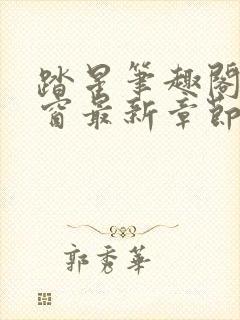 踏星筆趣閣
窗最新章節
郭秀華